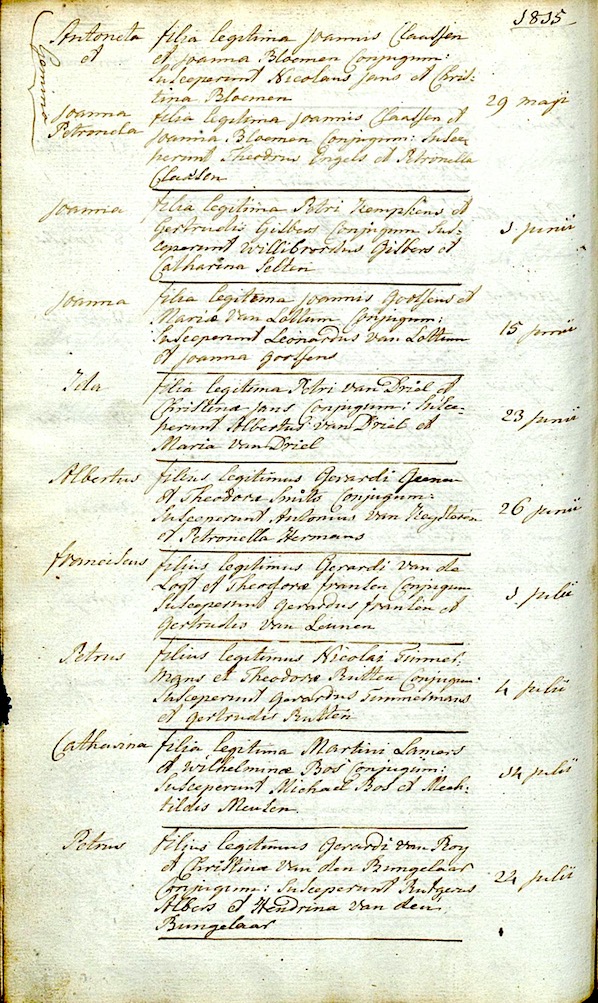 1815
Antoneta filia legitima Joannis Claassen
et et Joanna Bloemen Conjugum:
Gemini susceperunt Nicolaus Jans et Chris-
tina Bloemen 29 maji
Joanna filia legitima Joannis Claassen et
Petronela Joanna Bloemen Conjugum: susce-
perunt Theodrus Engels et Petronella
Claassen
Joanna filia legitima Petri Kempkens et
Gertrudis Gilbers Conjugum sus- junii
ceperunt Willibrordus Gilbers et
Catharina Selten
Joanna filia legitima Joannis Goossens et
Mariæ van Lottum Conjugum: 15 junii
susceperunt Leonardus van Lottum
et Joanna Goossens
Ida filia legitima Petri van Driel et
Christinæ Jans Conjugum: susce- 23 junii
perunt Albertus van Driel et
Maria van Driel
Albertus filius legitimus Gerardi Geenen
et Theodoræ Smits Conjugum: 26 junii
susceperunt Antonius van
et Petronella Hermans
Franciscus filius legitimus Gerardi van de
Logt et Theodoræ Franken Conjugum julii
susceperunt Gerardus Franken et
Gertrudis van Leunen
Petrus filius legitimus Nicolai Timmer-
mans et Theodoræ Rutten Conjugum: 4 julii
susceperunt Gerardus Timmermans
et Gertrudis Rutten
Catharina filia legitima Martini Lamers
et Wilhelminæ Bos Conjugum: 14 julii
susceperunt Michael Bos et Mech-
tildis Meusen
Petrus filius legitimus Gerardi van Roy
et Christinæ van den Bungelaar 24 julii
Conjugum: susceperunt Rutgerus
Albers et Hendrina van den
Bungelaar